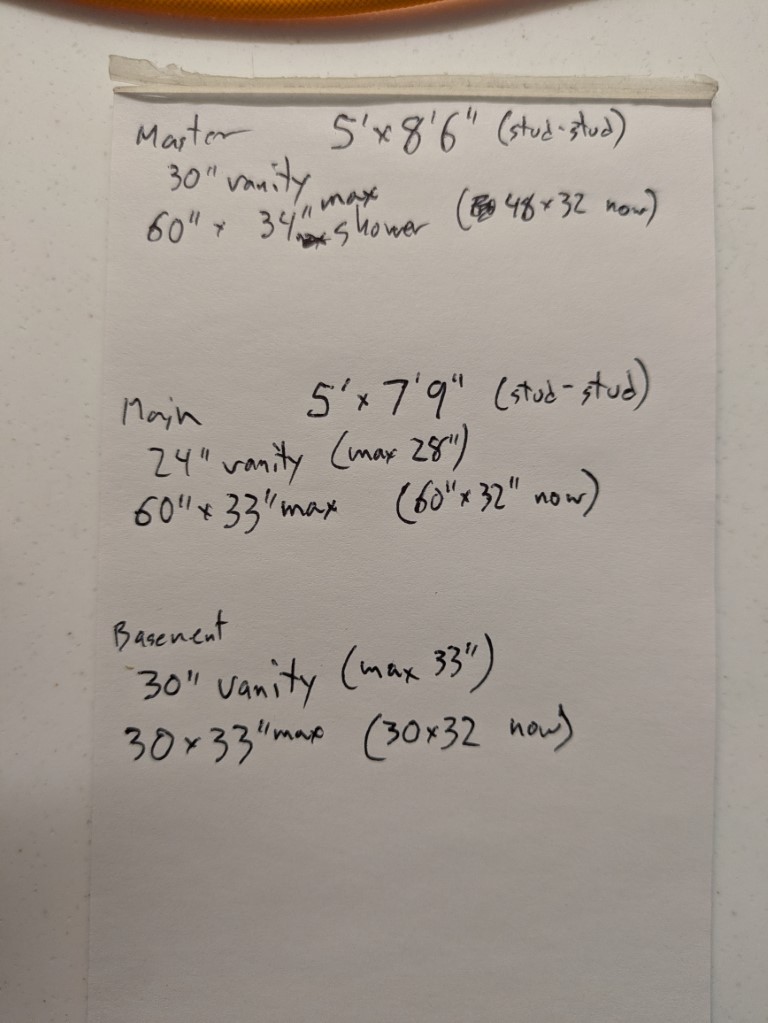 Master 5' x 8'6" (stud-stud)
30" vanity
60" x 34" max shower (48 x 32 now)
Main 5' x 7'9" (stud-stud)
24" vanity (max 28")
60" x 33" max (60" x 32" now)
Basement
30" vanity (max 33")
30 x 33" max (30 x 32 now)